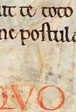 ut te toto
ne postula
QVO